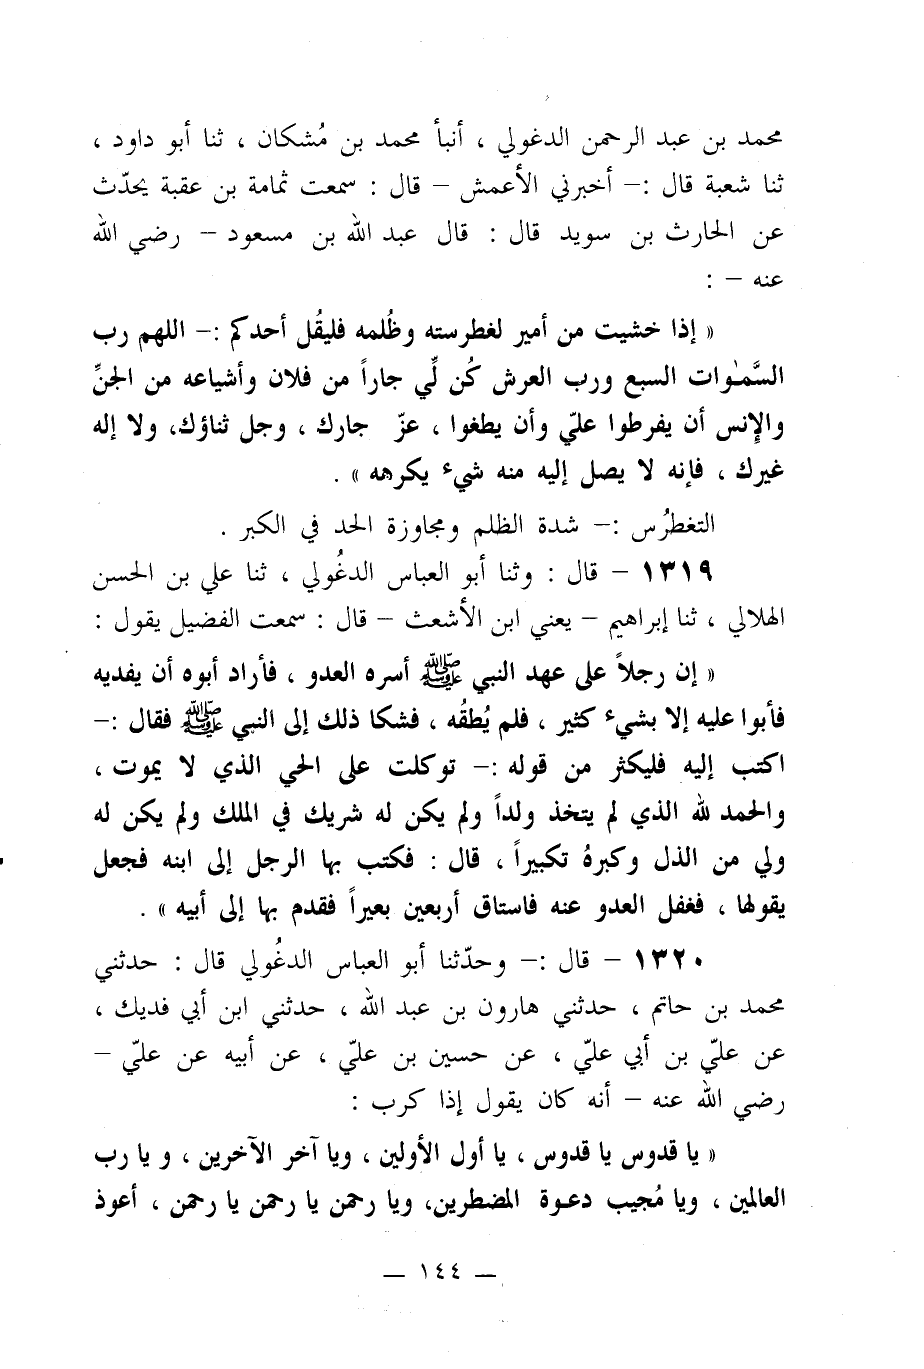 محمد بن عبد الرحمن الدغولي ، أنبأ محمد بن مُشكان ، ثنا أبو داود ،
ثنا شعبة قال :– أخبرني الأعمش – قال : سمعت ثمامة بن عقبة يحدّث
عن الحارث بن سويد قال : قال عبد الله بن مسعود – رضي الله
عنه – :
« إذا خشيت من أمير لغطرسته وظُلمه فليقُل أحدكم :– اللهم رب
السَّمٰوات السبع ورب العرش كُن لِّي جاراً من فلان وأشياعه من الجنِّ
والإنس أن يفرطوا عليّ وأن يطغوا ، عزّ جارك ، وجل ثناؤك، ولا إله
غيرك ، فإنه لا يصل إليه منه شيء يكرهه » .
التغطرُس :– شدة الظلم ومجاوزة الحد في الكبر .
١٣١٩ – قال : وثنا أبو العباس الدغُولي ، ثنا علي بن الحسن
الهلالي ، ثنا إبراهيم – يعني ابن الأشعث – قال : سمعت الفضيل يقول :
« إن رجلاً على عهد النبي ﷺ أسره العدو ، فأراد أبوه أن يفديه
فأبوا عليه إلا بشيء كثير ، فلم يُطقُه ، فشكا ذلك إلى النبي ﷺ فقال :–
اكتب إليه فليكثر من قوله :– توكلت على الحي الذي لا يموت ،
والحمد لله الذي لم يتخذ ولداً ولم يكن له شريك في الملك ولم يكن له
ولي من الذل وكبرهُ تكبيراً ، قال : فكتب بها الرجل إلى ابنه فجعل
يقولها ، فغفل العدو عنه فاستاق أربعين بعيراً فقدم بها إلى أبيه » .
١٣٢٠ – قال :– وحدّثنا أبو العباس الدغُولي قال : حدثني
محمد بن حاتم ، حدثني هارون بن عبد الله ، حدثني ابن أبي فديك ،
عن عليّ بن أبي عليّ ، عن حسين بن عليّ ، عن أبيه عن عليّ –
رضي الله عنه – أنه كان يقول إذا كرب :
« يا قدوس يا قدوس ، يا أول الأولين ، ويا آخر الآخرين ، و يا رب
العالمين ، ويا مُجيب دعوة المضطرين، ويا رحمن يا رحمن يا رحمن ، أعوذ
— ١٤٤ —